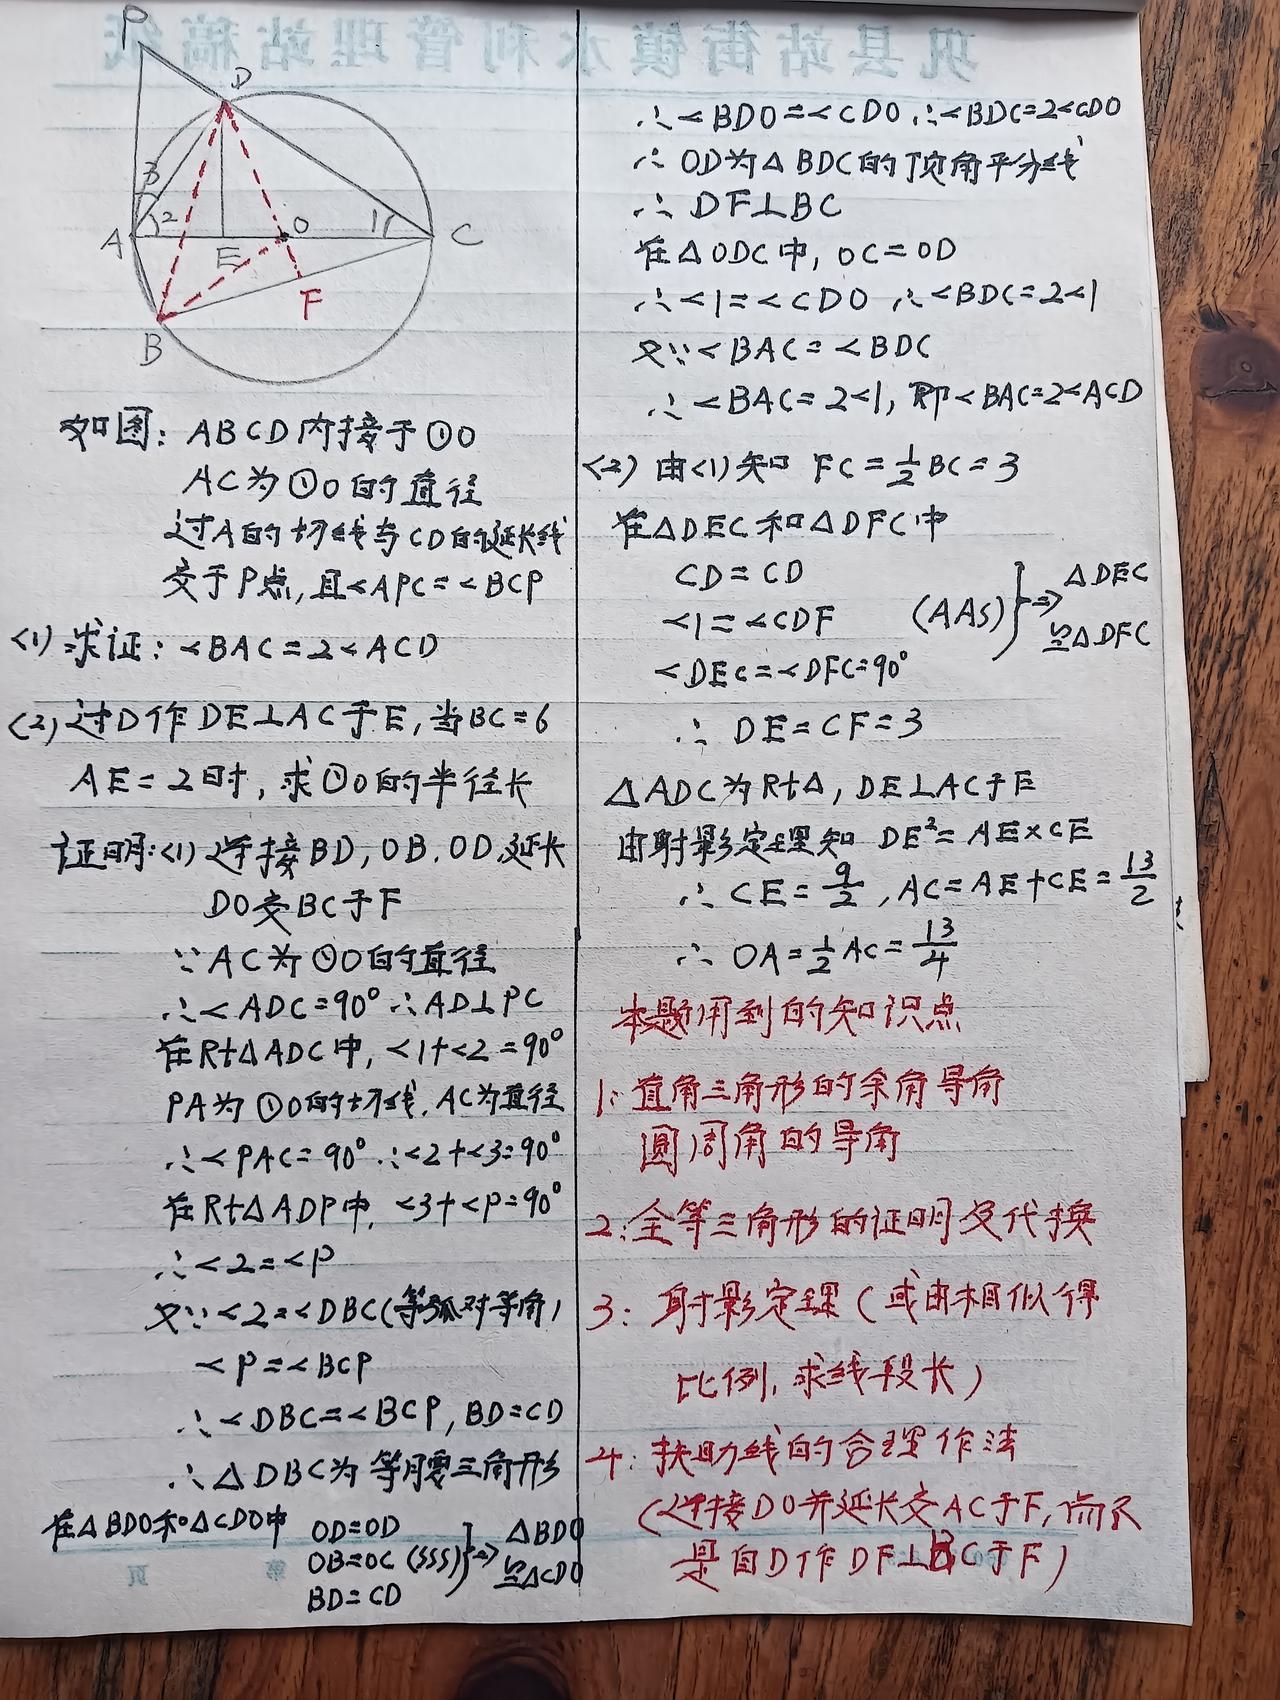 巩县站街镇水利管理站稿纸
P
D
3
A
2
E
O
1
C
F
B
如图: ABCD内接于⊙O
AC为⊙O的直径
过A的切线与CD的延长线
交于P点,且<APC=<BCP
<1>求证: <BAC=2<ACD
<2>过D作DE⊥AC于E,当BC=6
AE=2时,求⊙O的半径长
证明:<1>连接BD,OB.OD,延长
DO交BC于F
∵AC为⊙O的直径
∴<ADC=90°∴AD⊥PC
在Rt△ADC中,<1+<2=90°
PA为⊙O的切线.AC为直径
∴<PAC=90°∴<2+<3=90°
在Rt△ADP中,<3+<P=90°
∴<2=<P
又∵<2=<DBC(等弧对等角)
<P=<BCP
∴<DBC=<BCP,BD=CD
∴△DBC为等腰三角形
在△BDO和△CDO中
OD=OD
OB=OC (SSS)}⇒△BDO
BD=CD ≌△CDO
∴<BDO=<CDO ∴<BDC=2<CDO
∴OD为△BDC的顶角平分线
∴DF⊥BC
在△ODC中,OC=OD
∴<1=<CDO ∴<BDC=2<1
又∵<BAC=<BDC
∴<BAC=2<1,即<BAC=2<ACD
<2>由<1>知 FC=½BC=3
在△DEC和△DFC中
CD=CD
<1=<CDF (AAS)}⇒△DEC
<DEC=<DFC=90° ≌△DFC
∴DE=CF=3
△ADC为Rt△,DE⊥AC于E
由射影定理知 DE²=AE×CE
∴CE=9/2,AC=AE+CE=13/2
∴OA=½AC=13/4
本题用到的知识点
1:直角三角形的余角导角
圆周角的导角
2:全等三角形的证明及代换
3:射影定理(或由相似得
比例,求线段长)
4:扶助线的合理作法
(连接DO并延长交AC于F,而不
是自D作DF⊥BC于F)
第 页